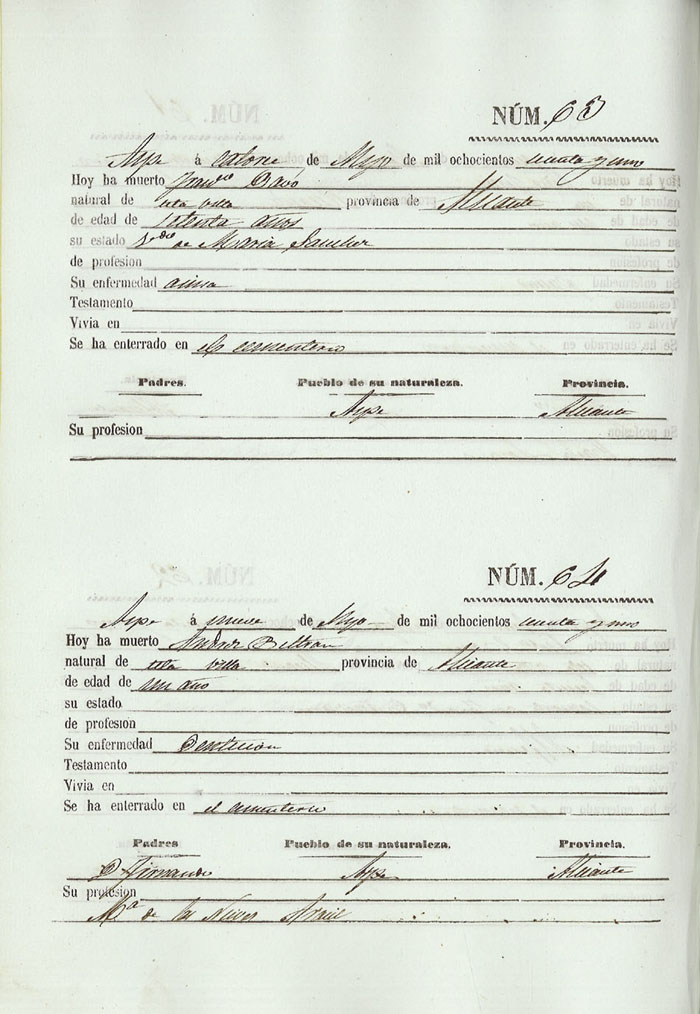 NÚM. 63
Aspe á catorce de Mayo de mil ochocientos cuenta y uno
Hoy ha muerto Franco Davó
natural de esta villa provincia de Alicante
de edad de setenta años
su estado Vdo de Maria Sanchez
de profesion
Su enfermedad asma
Testamento
Vivia en
Se ha enterrado en el cementerio
Padres. Pueblo de su naturaleza. Provincia.
Aspe Alicante
Su profesion
NÚM. 64
Aspe á nueve de Mayo de mil ochocientos cuenta y uno
Hoy ha muerto Andres Beltran
natural de esta villa provincia de Alicante
de edad de un año
su estado
de profesion
Su enfermedad Denticion
Testamento
Vivia en
Se ha enterrado en el cementerio
Padres Pueblo de su naturaleza. Provincia.
D Fernando Aspe Alicante
Su profesion
Ma de las Nieves